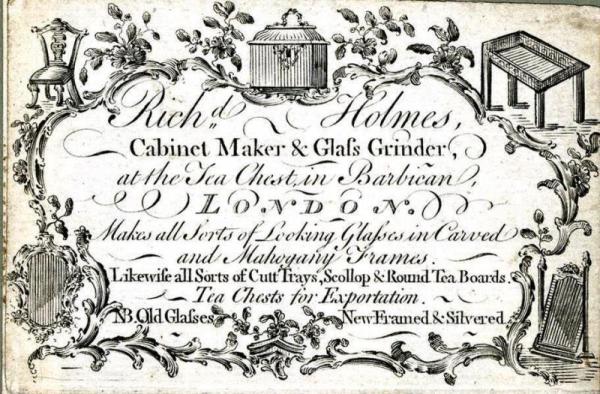 Richd. Holmes,
Cabinet Maker & Glaſs Grinder,
at the Tea Chest, in Barbican,
LONDON.
Makes all Sorts of Looking Glaſses in Carved
and Mahogany Frames.
Likewiſe all Sorts of Cutt Trays, Scollop & Round Tea Boards.
Tea Chests for Exportation.
NB. Old Glaſses New Framed & Silvered.